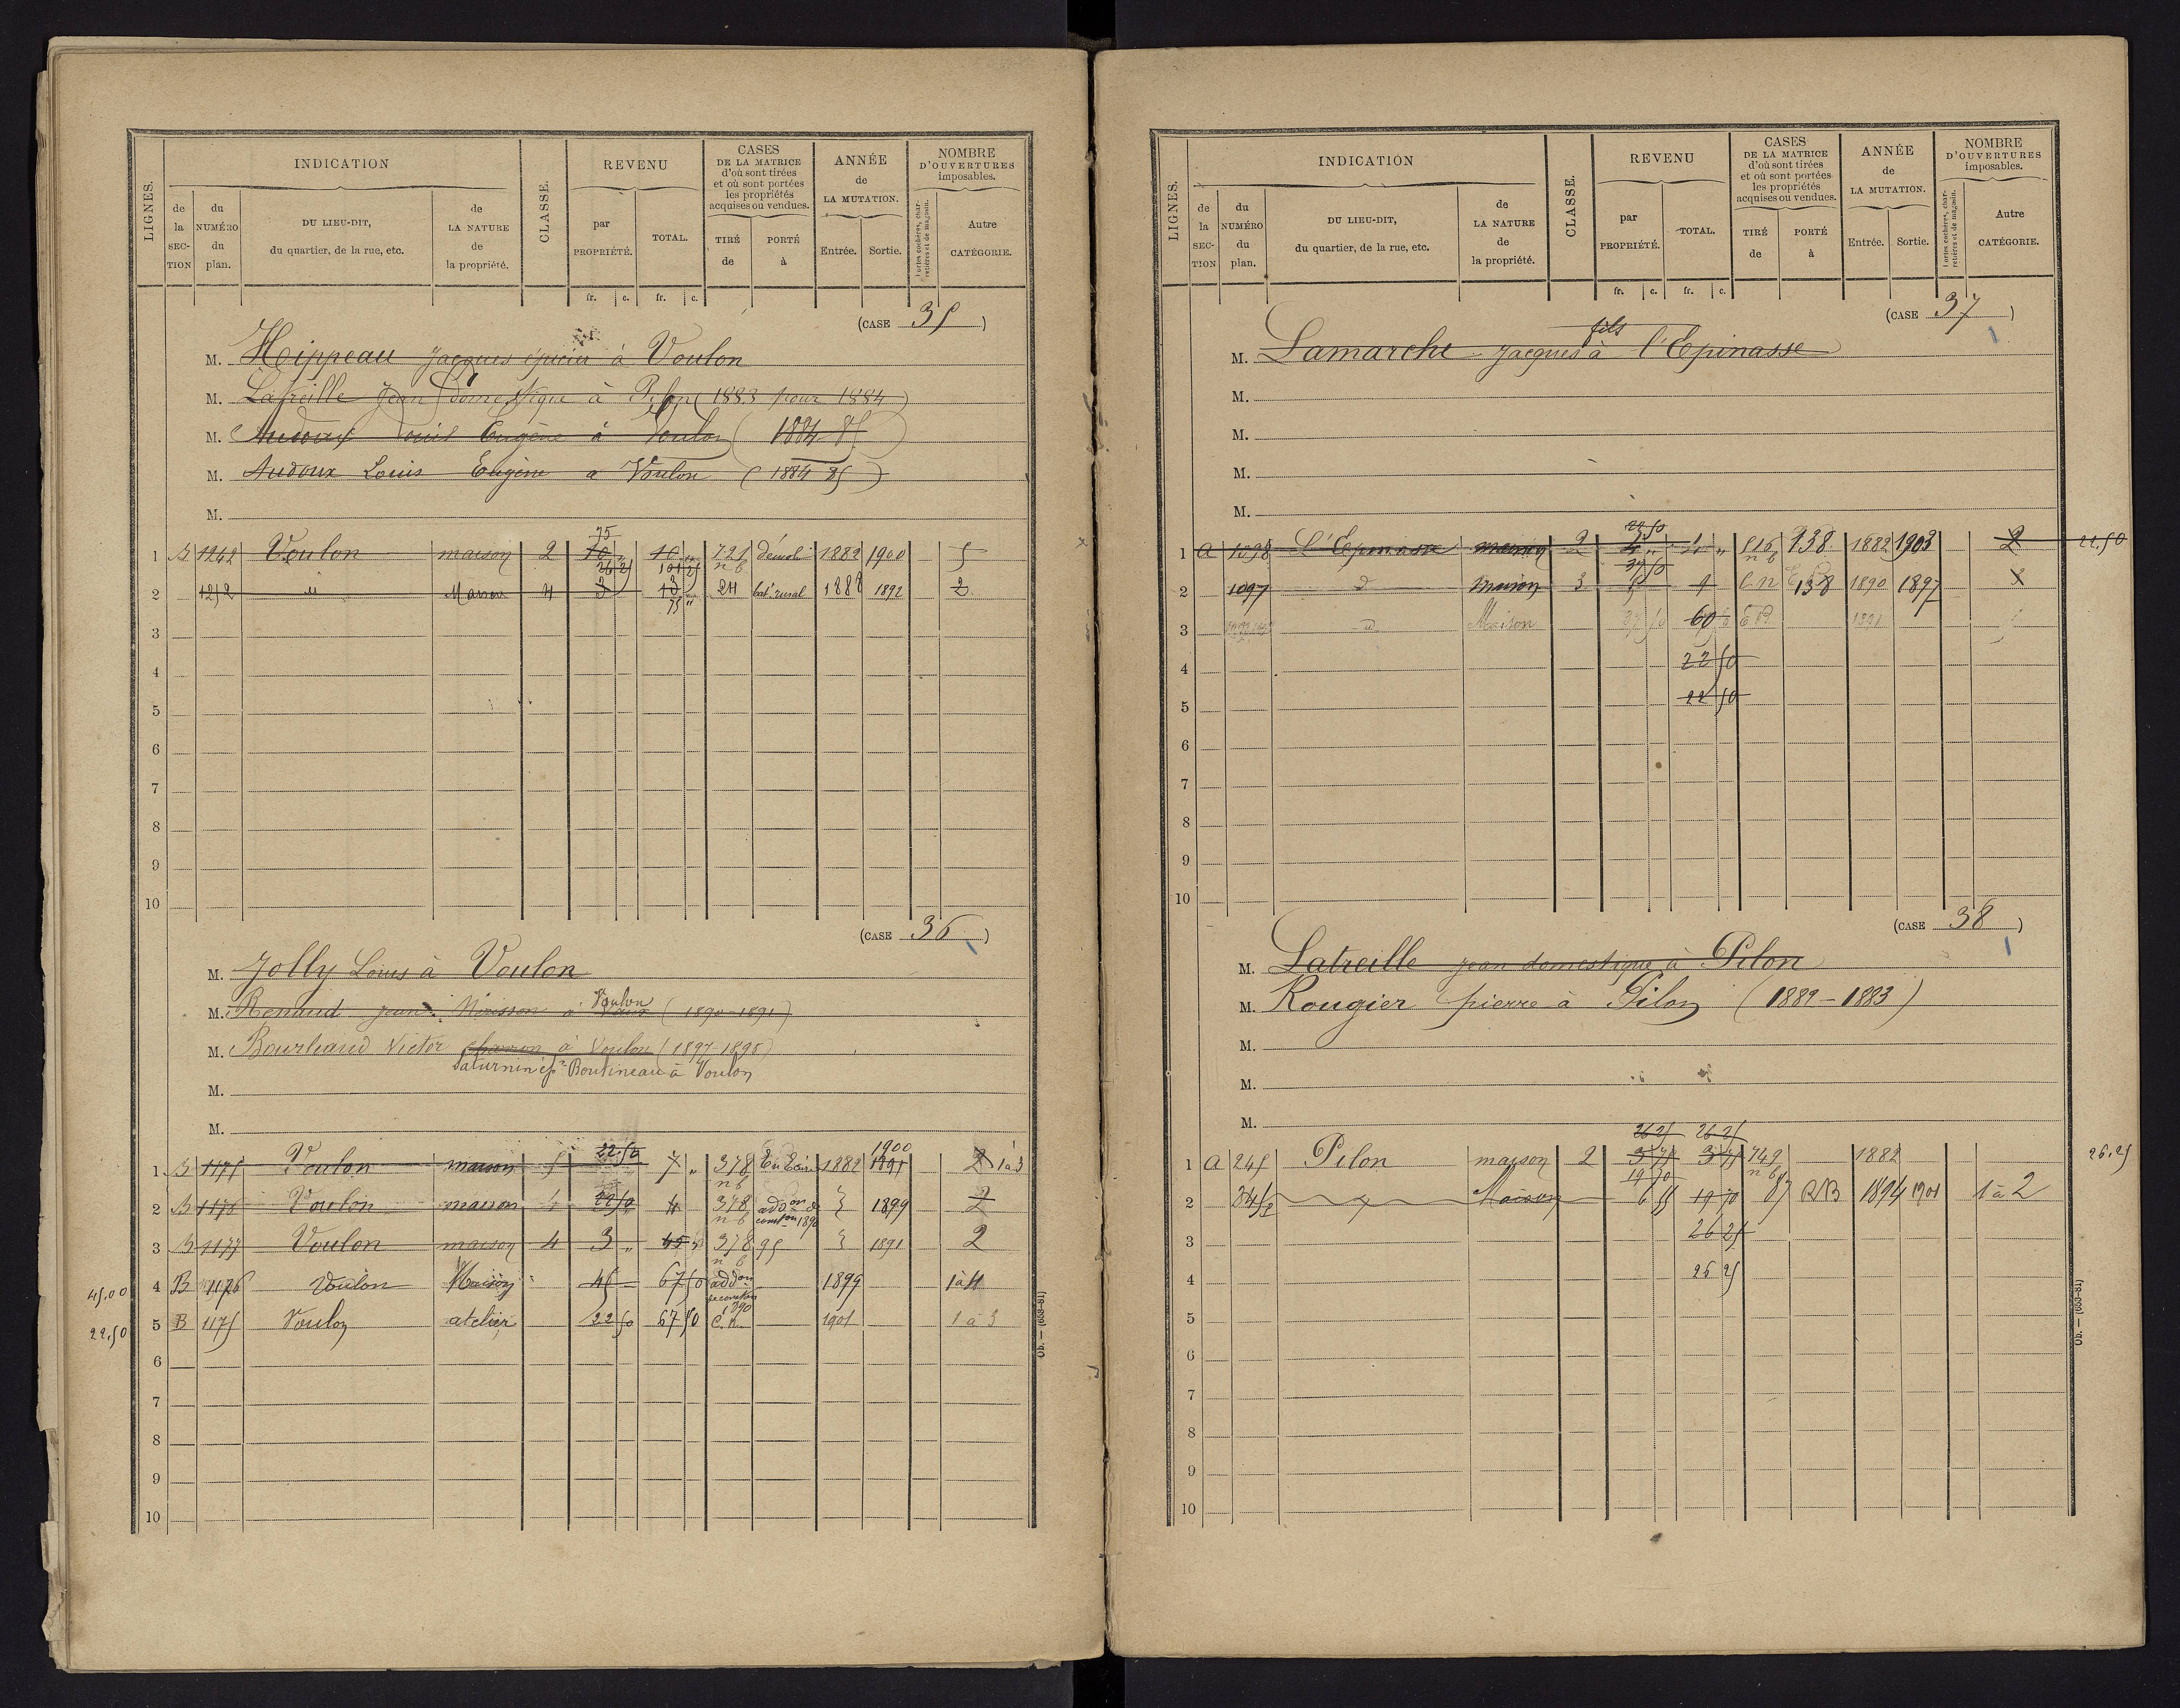 LIGNES. INDICATION CLASSE. REVENU CASES DE LA MATRICE d'où sont tirées et où sont portées les propriétés acquises ou vendues. ANNÉE de LA MUTATION. NOMBRE D'OUVERTURES imposables.
de la SECTION du NUMÉRO du plan. DU LIEU-DIT, du quartier, de la rue, etc. de LA NATURE de la propriété. par PROPRIÉTÉ. TOTAL. TIRÉ de PORTÉ à Entrée. Sortie. Portes cochères, charretières et de magasin. Autre CATÉGORIE.
fr. c. fr. c.
(CASE 35)
M. Hippeau Jacques épicier à Voulon
M. Latreille Jean domestique à Pilon (1883 pour 1884)
M. Audoux Louis Eugène à Voulon (1884-85)
M. Audoux Louis Eugène a Voulon (1884 85)
M.
75
1 B 1242 Voulon maison 2 10 " 10 " 721 démoli 1882 1900 5
26 25 101 25 n b
2 1252 d Maison 4 3 13 211 bat. rural 1888 1892 2
75 "
3
4
5
6
7
8
9
10
(CASE 36)
M. Jolly Louis à Voulon
M. Renaud Jean à Voulon (1890-1891)
M. Bourliaud Victor charron à Voulon (1897-1898)
Saturnin ép. Boutineau à Voulon
M.
M.
22.50 1900
1 B 1175 Voulon maison 5 7 " 378 1882 1891 2 1 à 3
n b
2 B 1176 Voulon maison 4 22 50 4 378 addon de 1899 2
n b conston 1890
3 B 1177 Voulon maison 4 3 " 45 " 378 95 1891 2
n b
45.00 4 B 1176 Voulon Maison 45 67 50 addon 1899 1 à 4
reconston 1890
22.50 5 B 1175 Voulon atelier 22 50 67 50 C.n. 1901 1 à 3
6
7
8
9
10
Ob. — (653-81)
LIGNES. INDICATION CLASSE. REVENU CASES DE LA MATRICE d'où sont tirées et où sont portées les propriétés acquises ou vendues. ANNÉE de LA MUTATION. NOMBRE D'OUVERTURES imposables.
de la SECTION du NUMÉRO du plan. DU LIEU-DIT, du quartier, de la rue, etc. de LA NATURE de la propriété. par PROPRIÉTÉ. TOTAL. TIRÉ de PORTÉ à Entrée. Sortie. Portes cochères, charretières et de magasin. Autre CATÉGORIE.
fr. c. fr. c.
(CASE 37)
fils
M. Lamarche Jacques à l'Epinasse
M.
M.
M.
M.
22 50
1 A 1098 L'Epinasse maison 2 4 " " 138 1882 1903 2 22.50
37 50 n b
2 1097 d maison 3 C.n 138 1890 1897 2
3 d Maison 37 50 60 1891
4 22 50
5 22 50
6
7
8
9
10
(CASE 38)
M. Latreille Jean domestique à Pilon
M. Rougier pierre à Pilon (1882-1883)
M.
M.
M.
26 25 26 25
1 A 245 Pilon maison 2 3 75 3 75 749 1882 26.25
19 70 n b
2 Maison 19 70 87 1894 1901 1 à 2
3 26 25
4 26 25
5
6
7
8
9
10
Ob. — (653-81)